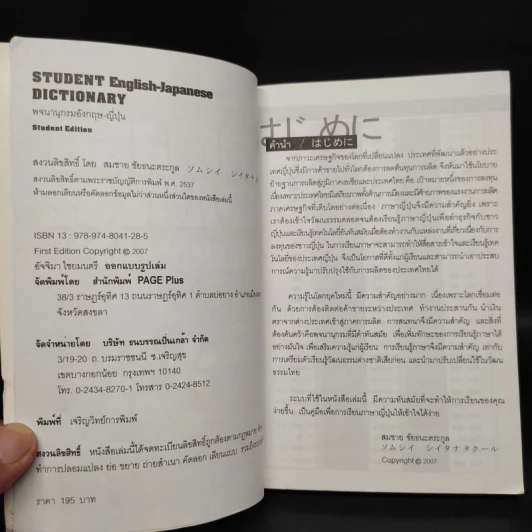 STUDENT English-Japanese
DICTIONARY
พจนานุกรมอังกฤษ-ญี่ปุ่น
Student Edition
สงวนลิขสิทธิ์ โดย สมชาย ชัยธนะตระกูล ソムシイ シイタナ
สงวนลิขสิทธิ์ตามพระราชบัญญัติการพิมพ์ พ.ศ. 2537
ห้ามลอกเลียนหรือคัดลอกข้อมูลไม่ว่าส่วนหนึ่งส่วนใดของหนังสือเล่มนี้
ISBN 13 : 978-974-8041-28-5
First Edition Copyright © 2007
อัจจิมา ไชยมนตรี ออกแบบรูปเล่ม
จัดพิมพ์โดย สำนักพิมพ์ PAGE Plus
38/3 ราษฎร์อุทิศ 1 ตำบลบ่อยาง อำเภอเมือง
จังหวัดสงขลา
จัดจำหน่ายโดย บริษัท ธนบรรณปิ่นเกล้า จำกัด
3/19-20 ถ. บรมราชชนนี ซ.เจริญสุข
เขตบางกอกน้อย กรุงเทพฯ 10140
โทร. 0-2434-8270-1 โทรสาร 0-2424-8512
พิมพ์ที่ เจริญวิทย์การพิมพ์
สงวนลิขสิทธิ์ หนังสือเล่มนี้ได้จดทะเบียนลิขสิทธิ์ถูกต้องตามกฎหมาย ห้าม
ทำการปลอมแปลง ย่อ ขยาย ถ่ายสำเนา คัดลอก เลียนแบบ
ราคา 195 บาท
はじめに
คำนำ / はじめに
จากภาวะเศรษฐกิจของโลกที่เปลี่ยนแปลง ประเทศที่พัฒนาแล้วอย่างประ
เทศญี่ปุ่นซึ่งมีการค้าขายไปทั่วโลกต้องการลดต้นทุนการผลิต จึงหันมาใช้นโยบาย
ย้ายฐานการผลิตสู่ภูมิภาคเอเชียและประเทศไทยคือ เป้าหมายหนึ่งของการลงทุน
เนื่องจากประเทศไทยมีเสถียรภาพทั้งด้านการเมืองและมีศักยภาพของแรงงานการผลิต
ภาคเศรษฐกิจที่เติบโตอย่างต่อเนื่อง ภาษาญี่ปุ่นจึงมีความสำคัญยิ่ง เพราะ
เราต้องเข้าใจวัฒนธรรมตลอดจนต้องเรียนรู้ภาษาญี่ปุ่นเพื่อทำธุรกิจกับชาว
ญี่ปุ่นและเรียนรู้เทคโนโลยีอันทันสมัยเมื่อต้องทำงานกับแหล่งงานที่เกี่ยวเนื่องกับการ
ลงทุนของชาวญี่ปุ่น ในการเรียนภาษาจะสามารถทำให้สื่อสารเข้าใจและเรียนรู้เทค
โนโลยีของประเทศญี่ปุ่น จึงเป็นโอกาสที่ดีที่ท่านผู้เรียนรู้และสามารถนำเอาประสบ
การณ์ความรู้มาปรับปรุงใช้กับการผลิตของประเทศไทยได้
ความรู้ในโลกยุคใหม่นี้ มีความสำคัญอย่างมาก เนื่องเพราะโลกเชื่อมต่อ
กัน ด้วยการต้องติดต่อค้าขายระหว่างประเทศ ทำงานประสานกัน นำเงิน
ตราจากต่างประเทศเข้าสู่ภาคการผลิต การสนทนาจึงมีความสำคัญ และสิ่งที่
ต้องค้นคว้าคือพจนานุกรมที่มีคำศัพท์ เพื่อเพิ่มทักษะของการเรียนรู้ภาษาได้
อย่างมั่นใจ เพื่อเสริมความรู้แก่ผู้เรียน การเรียนรู้ภาษาจึงมีความสำคัญ เท่ากับ
การเตรียมตัวเรียนรู้วัฒนธรรมต่างชาติเสียก่อน และนำมาปรับเปลี่ยนใช้ในวัฒน
ธรรมไทย
ระบบที่ใช้ในหนังสือเล่มนี้ มีความทันสมัยที่จะทำให้การเรียนของคุณ
ง่ายขึ้น เป็นคู่มือเพื่อการเรียนภาษาญี่ปุ่นให้เข้าใจได้ง่าย
สมชาย ชัยธนะตระกูล
ソムシイ シイタナタクール
Copyright © 2007